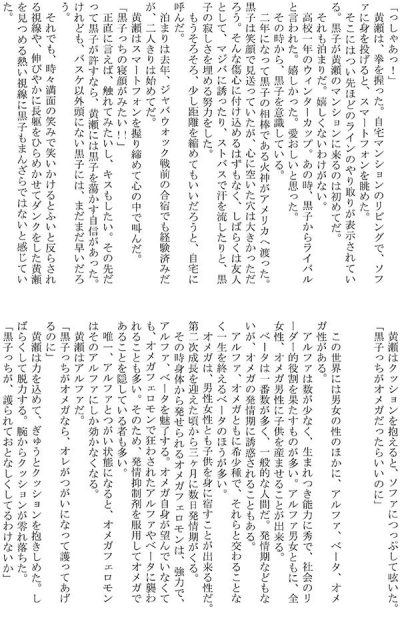 「っしゃあっ！」
　黄瀬は、拳を振った。自宅マンションのリビングで、ソフ
ァに身を投げると、スマートフォンを眺めた。
　そこにはつい先ほどのラインのやり取りが表示されてい
る。黒子が黄瀬のマンションに来るのは初めてだ。
　それも泊まりだ。嬉しくないわけがない。
　高校一年のウィンターカップ。あの時、黒子からライバル
と言われた。嬉しかった。愛おしいと思った。
　その時から、黒子を意識している。
　二年になって黒子の相棒である火神がアメリカへ渡った。
黒子は笑顔で見送っていたが、心に空いた穴は大きかっただ
ろう。そんな傷心に付け込めるはずもなく、しばらくは友人
として、マジバに誘ったり、ストバスで汗を流したりと、黒
子の寂しさを埋める努力をした。
　もうそろそろ、少し距離を縮めてもいいだろうと、自宅に
呼んだ。
　泊まりは去年、ジャバウォック戦前の合宿でも経験済みだ
が、二人きりは始めてだ。
　黄瀬はスマートフォンを握り締めて心の中で叫んだ。
「黒子っちの寝顔がみたい！！」
　正直に言えば、触れてみたいし、キスもしたい。その先だ
って黒子が許すなら、黄瀬には黒子を蕩かす自信があった。
けれども、バスケ以外頭にない黒子には、まだまだ早いだろ
う。
　それでも、時々満面の笑みで笑いかけるとふいと反らされ
る視線や、伸びやかに長躯をひらめかせてダンクをした黄瀬
を見つめる熱い視線に黒子もまんざらではないと感じてい
る。
　黄瀬はクッションを抱えると、ソファにつっぷして呟いた。
「黒子っちがオメガだったらいいのに」
　この世界には男女の性のほかに、アルファ、ベータ、オメ
ガ性がある。
　アルファは数が少なく、生まれつき能力に秀で、社会のリ
ーダー的役割を果たすものが多い。アルファ男女ともに、全
女性、オメガ男性に子供を産ませることが出来る。
　ベータは一番数が多く、一般的な人間だ。発情期などもな
いが、オメガの発情期に誘惑されることもある。
　アルファ、オメガともに希少種で、それらと交わることな
く一生を終えるベータのほうが多い。
　オメガは、男性女性とも子供を身に宿すことが出来る性だ。
第二次成長を迎えた頃から三ヶ月に数日発情期がくる。
　その時身体から発せられるオメガフェロモンは、強力で、
アルファ、ベータを魅了する。オメガ自身が望んでいなくて
も、オメガフェロモンで狂わされたアルファやベータに襲わ
れることも多い。そのため、発情抑制剤を服用してオメガで
あることを隠している者も多い。
　唯一、アルファとつがい状態になると、オメガフェロモン
はそのアルファにしか効かなくなる。
　黄瀬はアルファだ。
「黒子っちがオメガなら、オレがつがいになって護ってあげ
るのに」
　黄瀬は力を込めて、ぎゅうとクッションを抱きしめた。し
ばらくして脱力する。腕からクッションが零れ落ちた。
「黒子っちが、護られておとなしくしてるわけないか」